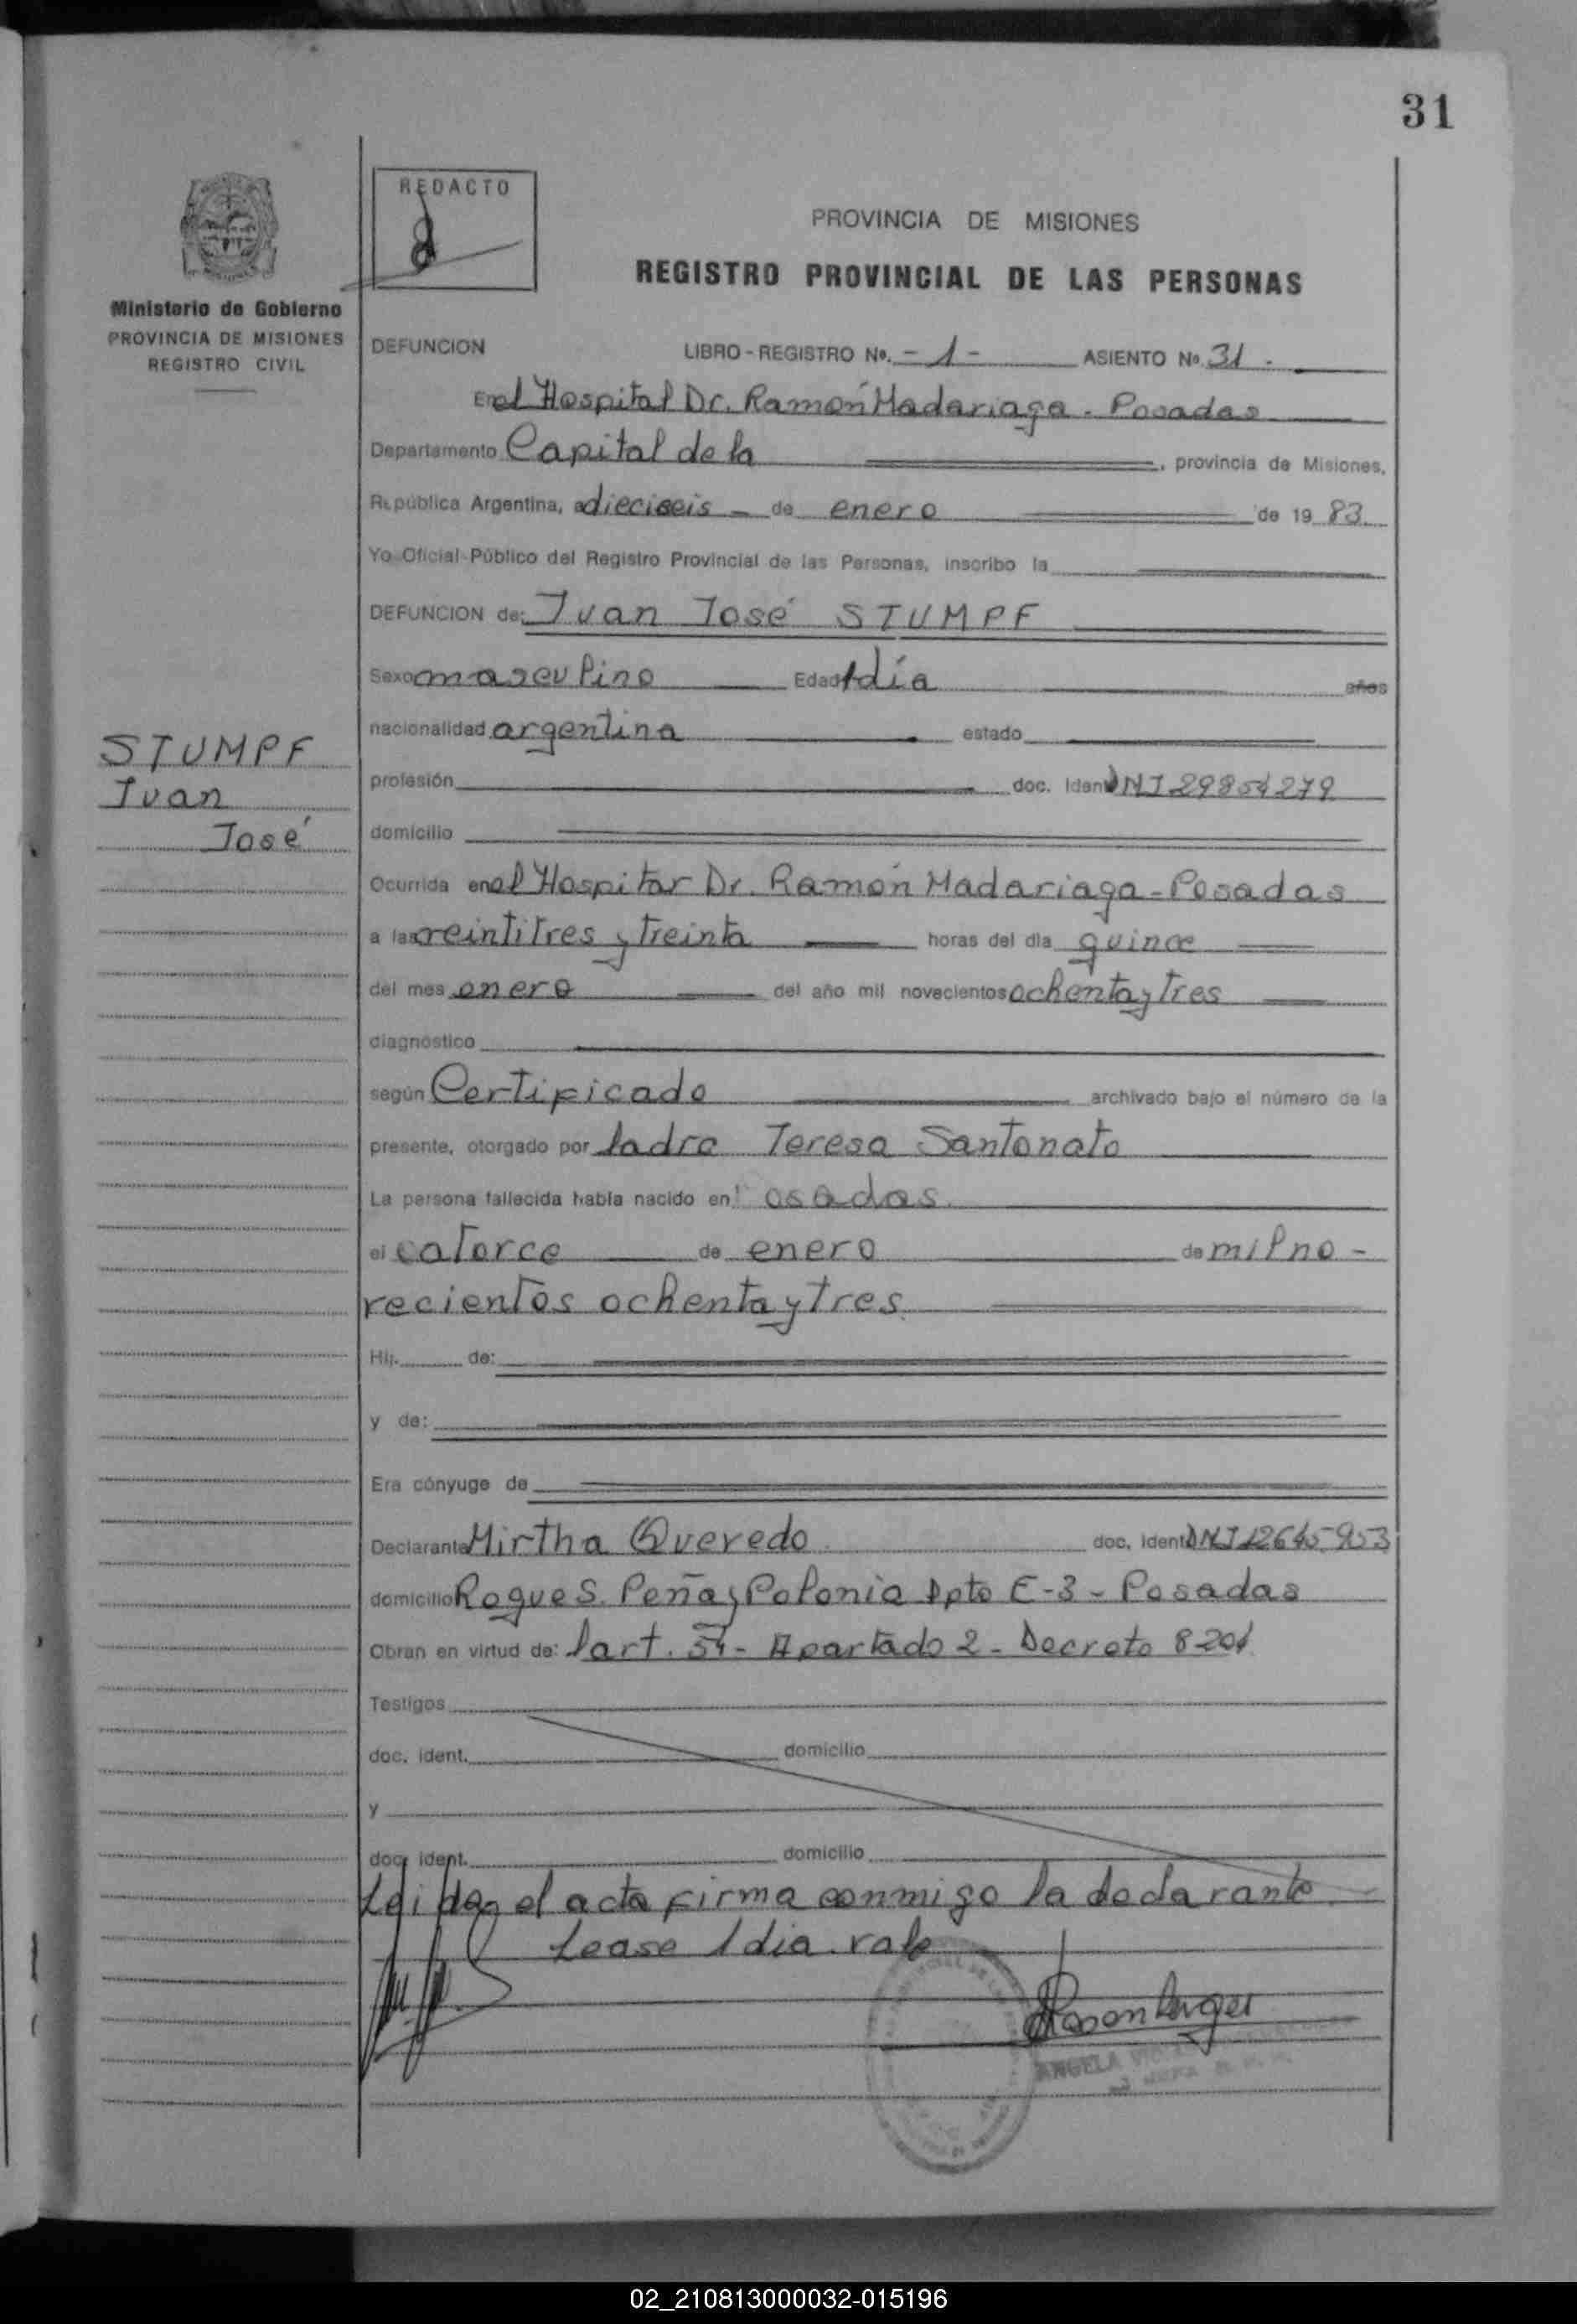 31
REDACTO
PROVINCIA DE MISIONES
REGISTRO PROVINCIAL DE LAS PERSONAS
Ministerio de Gobierno
PROVINCIA DE MISIONES
REGISTRO CIVIL
DEFUNCION LIBRO - REGISTRO Nº. - 1 - ASIENTO Nº 31.
En el Hospital Dr. Ramón Madariaga - Posadas
Departamento Capital de la , provincia de Misiones,
República Argentina, a dieciseis - de enero de 19 83
Yo Oficial Público del Registro Provincial de las Personas, inscribo la
DEFUNCION de: Juan José STUMPF
Sexo masculino Edad 1 día años
nacionalidad argentina estado
STUMPF
Juan
José
profesión doc. Ident DNI 29854279
domicilio
Ocurrida en el Hospitar Dr. Ramón Madariaga - Posadas
a las veintitres y treinta horas del día quince
del mes enero del año mil novecientos ochenta y tres
diagnóstico
según Certificado archivado bajo el número de la
presente, otorgado por la dra Teresa Santonato
La persona fallecida había nacido en Posadas.
el catorce de enero de mil no -
vecientos ochenta y tres.
Hij. de:
y de:
Era cónyuge de
Declarante Mirtha Quevedo. doc. Ident DNI 12645953
domicilio Roque S. Peña y Polonia Dpto E-3 - Posadas
Obran en virtud de: l art. 54 - Apartado 2 - Decreto 8204
Testigos
doc. ident. domicilio
y
doc. ident. domicilio
Leída el acta firma conmigo la declarante.
Lease 1 dia. vale
Rosenberger
ANGELA
02_210813000032-015196